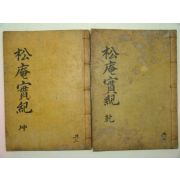 松庵實紀 乾
松庵實紀 坤